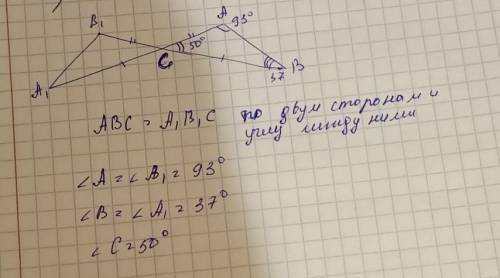 B₁
A
93°
50°
C
37
B
A₁
ABC = A₁B₁C по двум сторонам и
углу между ними
∠A = ∠B₁ = 93°
∠B = ∠A₁ = 37°
∠C = 50°